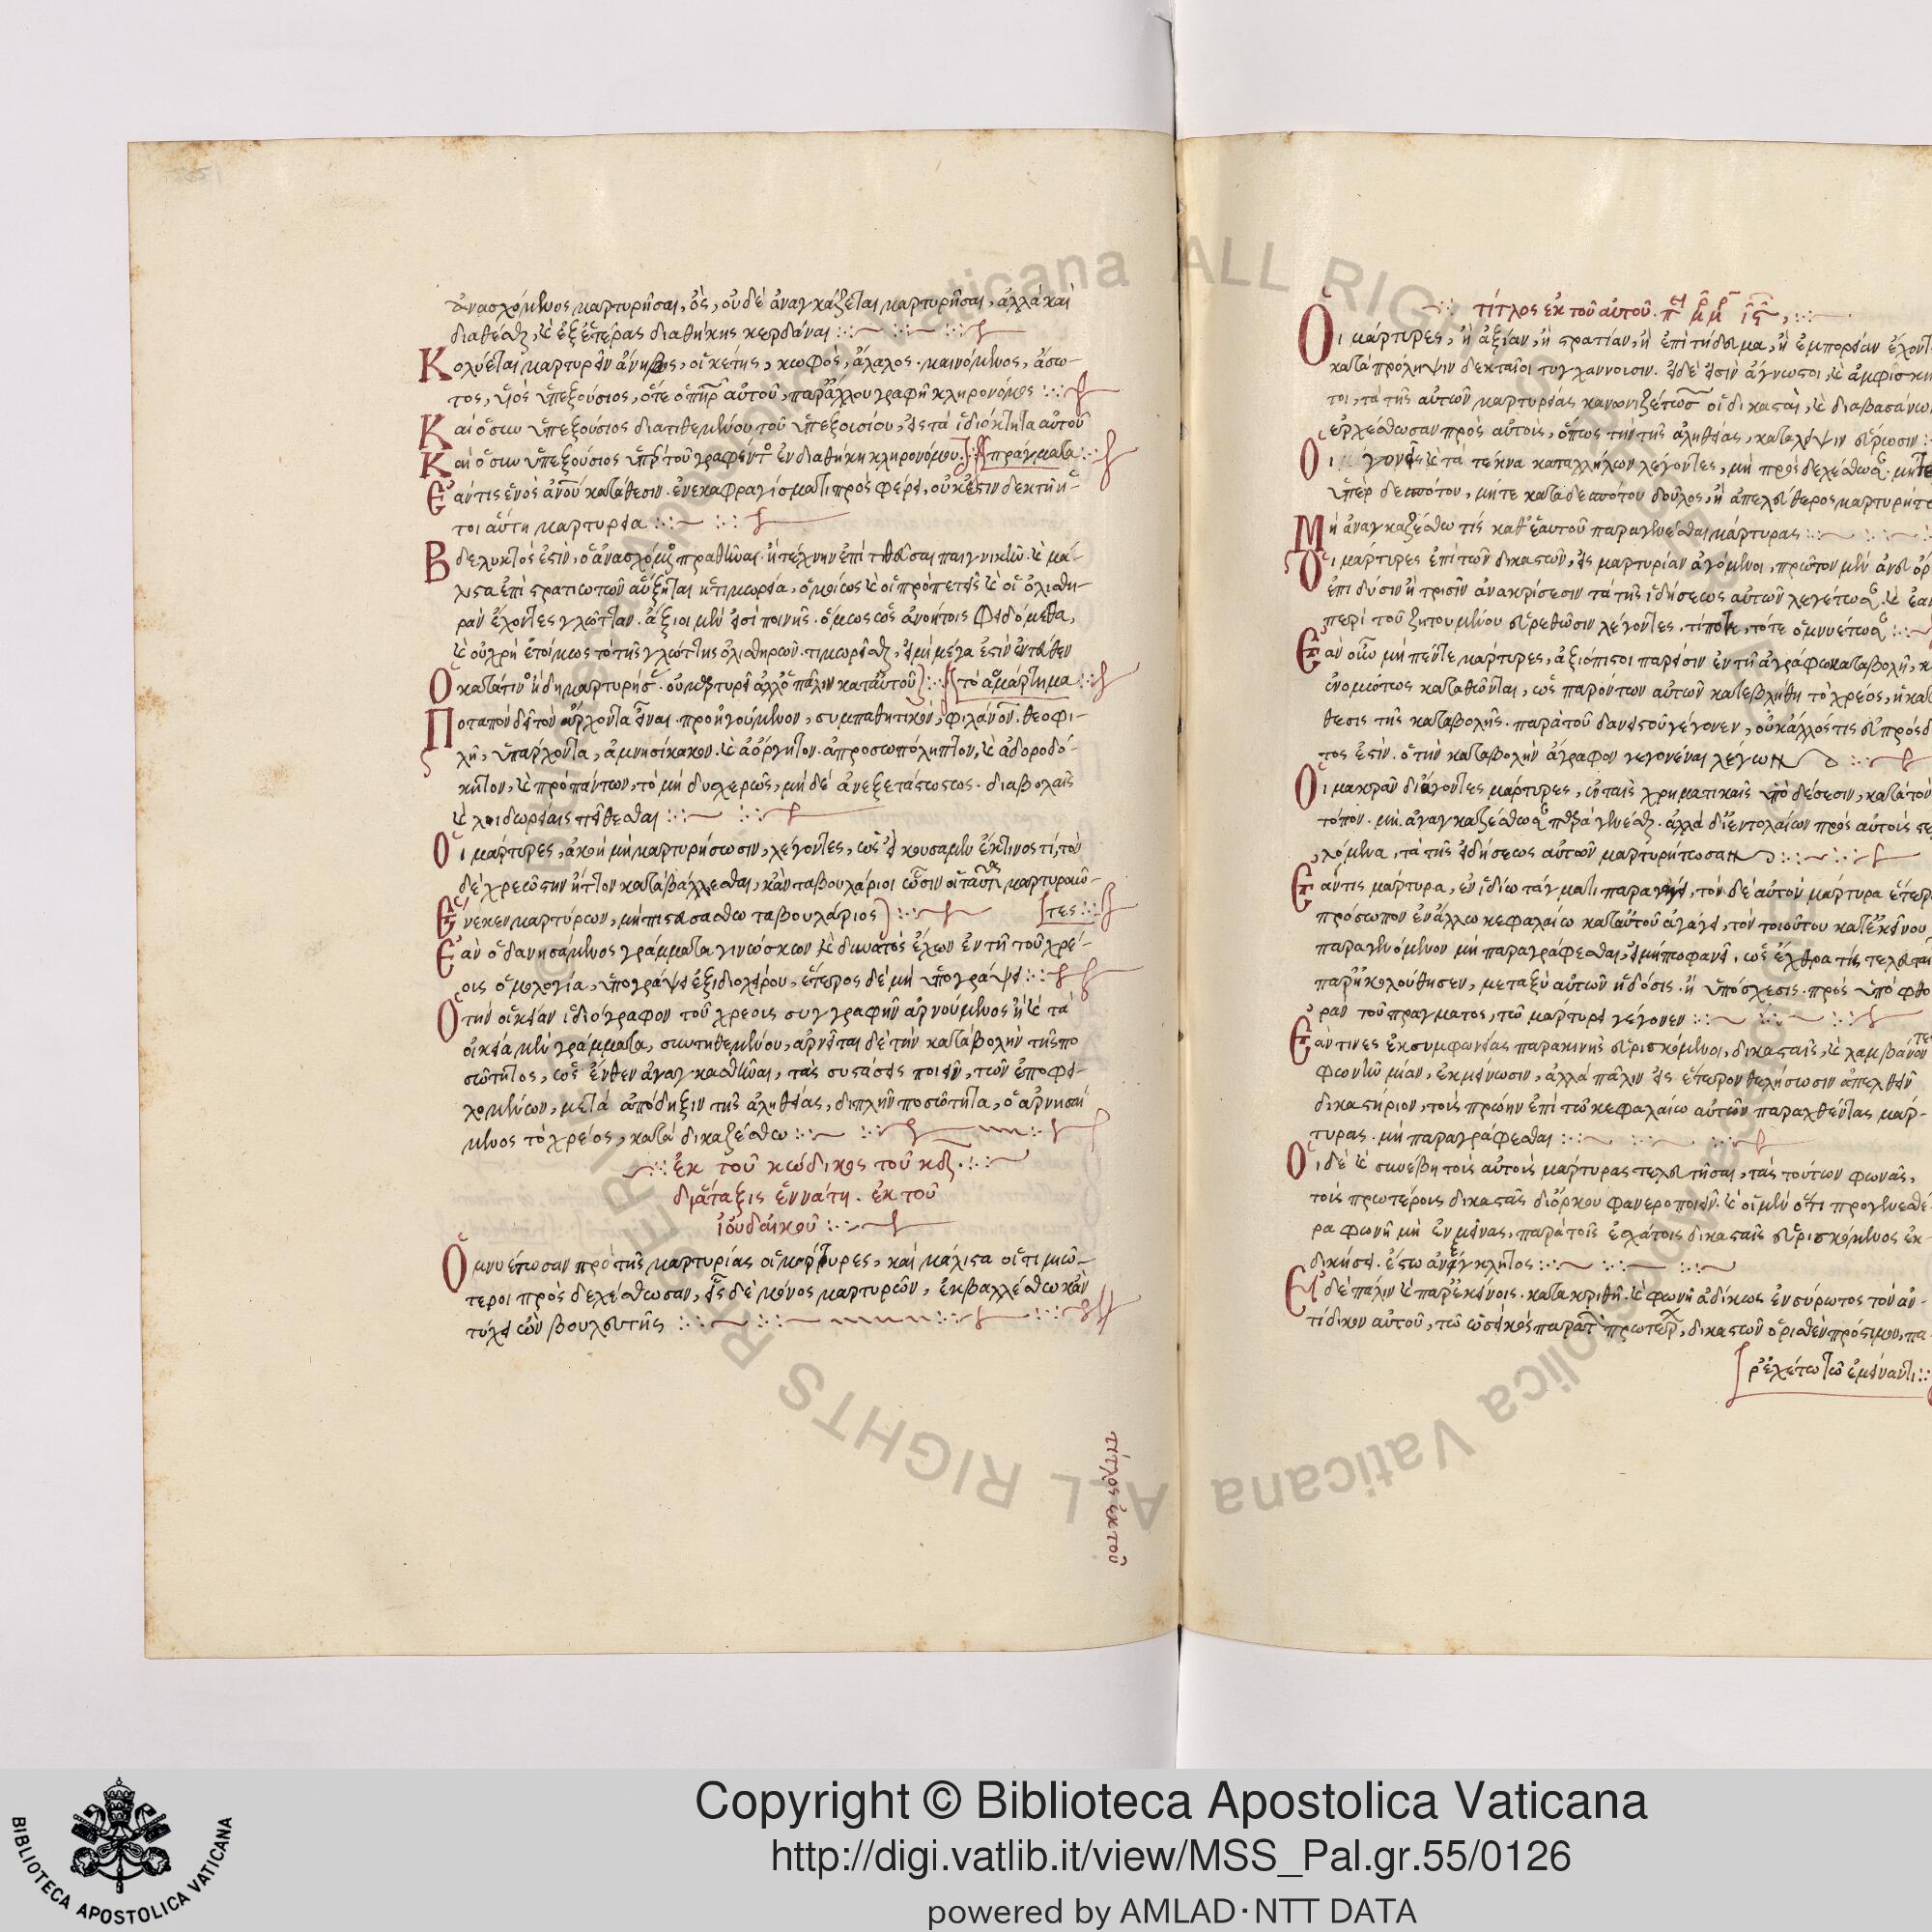 ἀνασχόμενος μαρτυρῆσαι, ὃς, οὐδὲ ἀναγκάζεται μαρτυρῆσαι, ἀλλὰ καὶ
διαθέσθαι, καὶ ἐξ ἑτέρας διαθήκης κερδάναι
Κολύεται μαρτυρεῖν ἄνηβος, οἰκέτης, κωφὸς, ἄλαλος· μαινόμενος, ἄσω-
τος, υἱὸς ὑπεξούσιος, ὅτε ὁ πηρ αὐτοῦ, παρ' ἄλλου γραφῆ κληρονόμος
Καὶ ὁ συν ὑπεξούσιος διατιθεμένου τοῦ ὑπεξουσίου, εἰς τὰ ἰδιόκτητα αὐτοῦ
Καὶ ὁ συν ὑπεξούσιος ὑπὲρ τοῦ γραφέντος ἐν διαθήκη κληρονόμου πράγματα
Ἐάν τις ἑνὸς ἀνου κατάθεσιν· ἐν ἐκσφραγίσματι προσφέρει, οὐκ ἔστιν δεκτὴ ἡ
τοιαύτη μαρτυρεία
Βδελυκτός ἐστιν, ὁ ἀνασχόμενος πραθῆναι· ἢ τέχνην ἐπιτηδεῦσαι παιγνικὴν· καὶ μά-
λιστα ἐπὶ στρατιωτῶν αὔξηται ἡ τιμωρεία, ὁμοίως καὶ οἱ προπετεῖς καὶ οἱ ὀλισθη-
ρὰν ἔχοντες γλῶτταν· ἄξιοι μὲν εἰσὶ ποινῆς· ὅμως ὡς ἀνοήτοις φειδόμεθα,
καὶ οὐ χρὴ ἑτοίμως τὸ τῆς γλώττης ὀλισθηρὸν· τιμωρεῖσθαι, εἰ μὴ μέγα ἐστὶν ἐντεῦθεν
Ὁ κατά τινος ἤδη μαρτυρήσας· οὐ μαρτυρεῖ ἄλλος πάλιν κατ' αὐτοῦ τὸ ἁμάρτημα
Ποταπὸν δεῖ τὸν ἄρχοντα εἶναι· προηγούμενον, συμπαθητικὸν, φιλάνον· θεοφι-
λῆ, ὑπάρχοντα, ἀμνησίκακον· καὶ ἀόργητον· ἀπροσωπόληπτον, καὶ ἀδοροδό-
κητον, καὶ πρὸ πάντων, τὸ μὴ δυσχερῶς, μὴ δὲ ἀνεξετάστως· διαβολαῖς
καὶ λοιδωρείαις πείθεσθαι
Οἱ μάρτυρες, ἀκοῆ μὴ μαρτυρήσωσιν, λέγοντες, ὡς ἠκούσαμεν ἔκ τινος τί, τὸν
δὲ χρεώστην ἤτιον καταβάλλεσθαι, κἂν ταβουλάριοι ὦσιν οἱ ταῦτα μαρτυροῦν-
τες
Ἕνεκεν μαρτύρων, μὴ πιστευσάσθω ταβουλάριος
Ἐὰν ὁ δανησάμενος γράμματα γινώσκων καὶ δυνατὸς ἔχων ἐν τῆ τοῦ χρέ-
ους ὁμολογία, ὑπογράψει ἐξ ἰδιοχείρου, ἕτερος δὲ μὴ ὑπογράψει
Ὁ τὴν οἰκείαν ἰδιόγραφον τοῦ χρέους συγγραφὴν ἀρνούμενος ἢ καὶ τὰ
οἰκεῖα μὲν γράμματα, συντηθεμένου, ἀρνεῖται δὲ τὴν καταβολὴν τῆς πο
σότητος, ὡς ἔνθεν ἀναγκασθῆναι, τὰς συστάσεις ποιεῖν, τῶν ἐποφει-
λομένων, μετὰ ἀπόδηξιν τῆς ἀληθείας, διπλὴν ποσότητα, ὁ ἀρνησά
μενος τὸ χρέος, καταδικαζέσθω
ἐκ τοῦ κώδικος τοῦ κδζ·
διάταξις ἐννάτη· ἐκ τοῦ
ἰουδαϊκοῦ
Ὀμνυέτωσαν πρὸ τῆς μαρτυρίας οἱ μάρτυρες, καὶ μάλιστα οἱ ἐντιμώ-
τεροι προσδεχέσθωσαν, εἷς δὲ μόνος μαρτυρῶν, ἐκβαλλέσθω κἂν
τύχει ὢν βουλευτῆς
τίτλος ἐκ τοῦ
τίτλος ἐκ τοῦ αὐτοῦ·
Οἱ μάρτυρες, ἢ ἀξίαν, ἢ στρατίαν, ἢ ἐπιτήδευμα, ἢ ἐμπορείαν ἔχοντ
κατὰ πρόληψιν δεκταῖοι τυγχάννουσιν· εἰ δὲ εἰσὶν ἄγνωστοι, καὶ ἀμφίσκη
τοι, τὰ τῆς αὐτῶν μαρτυρείας κανονιζέτωσαν οἱ δικασταὶ, καὶ διὰ βασάνω
ἐρχέσθωσαν πρὸς αὐτοὺς, ὅπως τὴν τῆς ἀληθείας, κατάλειψιν εὕρωσιν
Οἱ γονεῖς καὶ τὰ τέκνα καταλλήλων λέγοντες, μὴ προσδεχέσθωσαν· μήτε
ὑπὲρ δεσπότου, μήτε κατὰ δεσπότου δοῦλος, ἢ ἀπελεύθερος μαρτυρήτω
Μὴ ἀναγκαζέσθω τίς καθ' ἑαυτοῦ παραγενέσθαι μάρτυρας
Οἱ μάρτυρες ἐπὶ τῶν δικαστῶν, εἰς μαρτυρίαν ἀγόμενοι, πρῶτον μὲν ἄνευ ὅρ
ἐπὶ δύσιν ἢ τρισὶν ἀνακρίσεσιν τὰ τῆς ἰδήσεως αὐτῶν λεγέτωσαν· καὶ ἐὰν
περὶ τοῦ ζητουμένου εὑρεθῶσιν λέγοντες· τίποτε, τότε ὀμνυέτωσαν
Ἐὰν οὖν μὴ πέντε μάρτυρες, ἀξιόπιστοι παρεῖσιν ἐν τῆ ἀγράφω καταβολῆ, κ
ἐνομότως καταθῶνται, ὡς παρόντων αὐτῶν κατεβλήθη τὸ χρέος, ἢ κατ
θεσις τῆς καταβολῆς· παρὰ τοῦ δανειστοῦ γέγονεν, οὐκ ἄλλός τις εὐπρόσδ
τος ἐστὶν· ὁ τὴν καταβολὴν ἄγραφον γεγονέναι λέγων
Οἱ μακρὰν διάγοντες μάρτυρες, ἐν ταῖς χρηματικαῖς ὑποθέσεσιν, κατὰ τὸν
τόπον· μὴ ἀναγκαζέσθωσαν παραγενέσθαι· ἀλλὰ δι' ἐντολαίων πρὸς αὐτοὺς στε
λόμενα, τὰ τῆς εἰδήσεως αὐτῶν μαρτυρήτωσαν
Ἐάν τις μάρτυρα, ἐν ἰδίω τάγματι παραγάγει, τὸν δὲ αὐτὸν μάρτυρα ἕτερ
πρόσωπον ἐν ἄλλω κεφαλαίω κατ' αὐτοῦ ἀγάγει, τὸν τοιοῦτον κατ' ἐκείνου
παραγενόμενον μὴ παραγράφεσθαι, εἰ μήπω φανεῖ, ὡς ἔχθρα τίς τελευταί
παρηκολούθησεν, μεταξὺ αὐτῶν ἢ δόσις· ἢ ὑπόσχεσις· πρὸς ὑποφθο
ρὰν τοῦ πραγματος, τῶ μάρτυρει γέγονεν
Ἐάν τινες ἐκ συμφωνείας παρακινῆς εὑρισκόμενοι, δικασταῖς, καὶ λαμβάνοντες
φωνὴν μίαν, ἐκμείνωσιν, ἀλλὰ πάλιν εἰς ἕτερον θελήσωσιν ἀπελθεῖν
δικαστηριον, τοὺς πρώην ἐπὶ τῶ κεφαλαίω αὐτῶν παραχθέντας μάρ-
τυρας· μὴ παραγράφεσθαι
Οἱ δὲ καὶ συνέβη τοὺς αὐτοὺς μάρτυρας τελευτῆσαι, τὰς τούτων φωνὰς,
τοὺς πρωτέρους δικαστὰς δι' ὅρκου φανεροποιεῖν· καὶ οἱ μὲν ὅτι προγενεσθέ
ρα φωνῆ μὴ ἐνμείνας, παρὰ τοῖς ἐσχάτοις δικασταῖς εὑρισκόμενος ἐκ-
δικήσει· ἔστω ἀνέγκλητος
Εἰ δὲ πάλιν καὶ παρ' ἐκείνοις· κατακριθῆ· καὶ φωνῆ ἀδίκως ἐνσύρωτος τὸν ἀν-
τίδικον αὐτοῦ, τῶ ὡς εἰκὸς παρὰ τῶν πρωτέρων, δικαστῶν ὁρισθὲν πρόστιμον, πα
ρεχέτω τῶ ἐμείναντι
Copyright © Biblioteca Apostolica Vaticana
http://digi.vatlib.it/view/MSS_Pal.gr.55/0126
powered by AMLAD·NTT DATA
BIBLIOTECA APOSTOLICA VATICANA